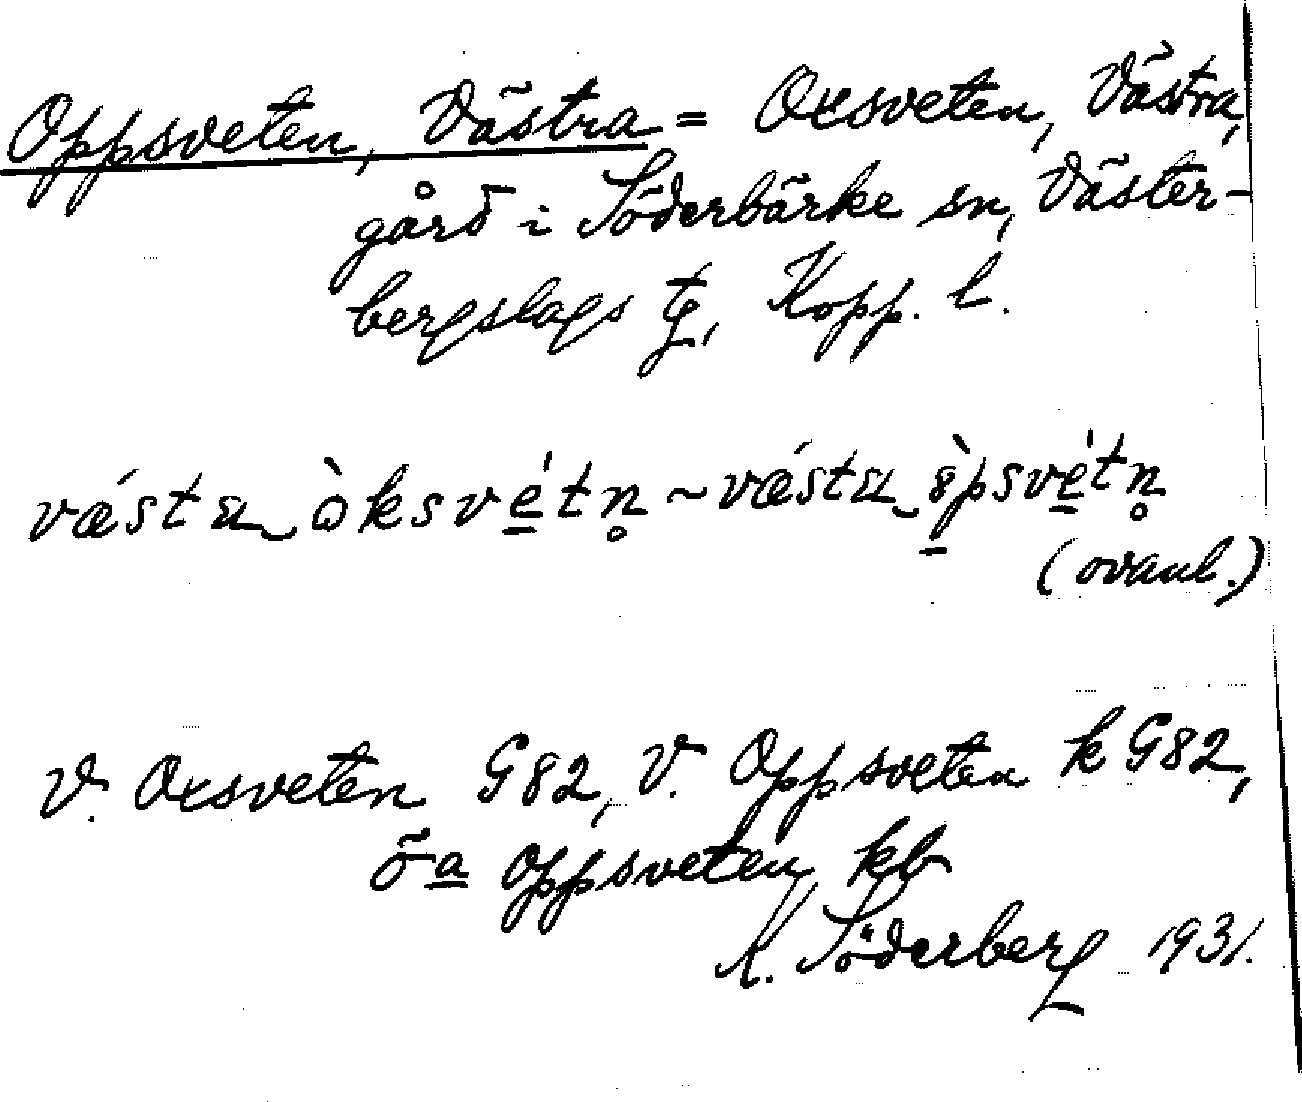 Oppsveten, Västra = Oxsveten, Västra,
gård i Söderbärke sn, Väster-
bergslags tg, Kopp. l.
vǽsta òksvé̱tn̥ ~ vǽsta òpsvé̱tn̥
(ovanl.)
V. Oxsveten G82, V. Oppsveten k G82,
öa oppsveten kb
K. Söderberg 1931.